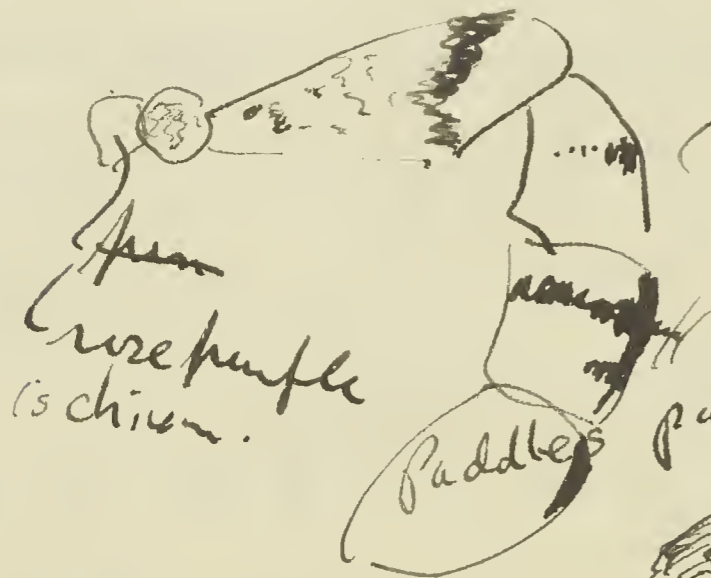 rose purple
ischium.
Paddles